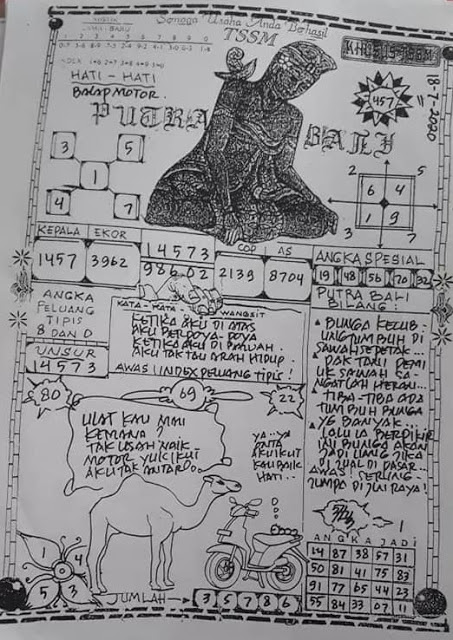 Semoga Usaha Anda Berhasil
TSSM
KHUSUS TSSM
1 2 3 4 5 6 7 8 9 0
HATI - HATI
BALAP MOTOR.
PUTRA
BALI
457
18-7-2020
3 5
1
4 7
2 5
6 4
1 9
3 7
KEPALA EKOR
14573
COP AS
ANGKA SPESIAL
1457 3962
986.02
2139 8704
19 48 56 70 32
ANGKA
PELUANG
TIPIS
8 DAN 0
UNSUR
14573
KATA - KATA WANGSIT
KETIKA AKU DI ATAS
AKU BERDOYA-DOYA
KETIKA AKU DI BAWAH.
AKU TAK TAU ARAH HIDUP.
AWAS! INDEX PELUANG TIPIS!
PUTRA BALI
BILANG:
BUNGA KECUB-
UNG TUMBUH DI
SAWAH SEPETAK...
PAK TANI PEMI
LIK SAWAH SA-
NGATLAH HERAN...
TIBA-TIBA ADA
TUMBUH BUNGA
YG BANYAK...
LALU IA BERPIKIR
INI BUNGA AKAN
JADI UANG JIKA
DI JUAL DI PASAR...
AWAS! SERING
JUMPA DI JLN RAYA!
80
69
22
ULAT KAU MAU
KEMANA
TAK USAH NAIK
MOTOR YUK IKUT
AKU TAK ANTAR
YA..YA
ONTA
AKU IKUT
KAU BAIK
HATI..
1 4
5 3
JUMLAH → 3 5 7 8 6
ANGKA JADI
14 87 38 57 31
50 81 41 75 83
91 77 65 44 23
55 84 33 07 11